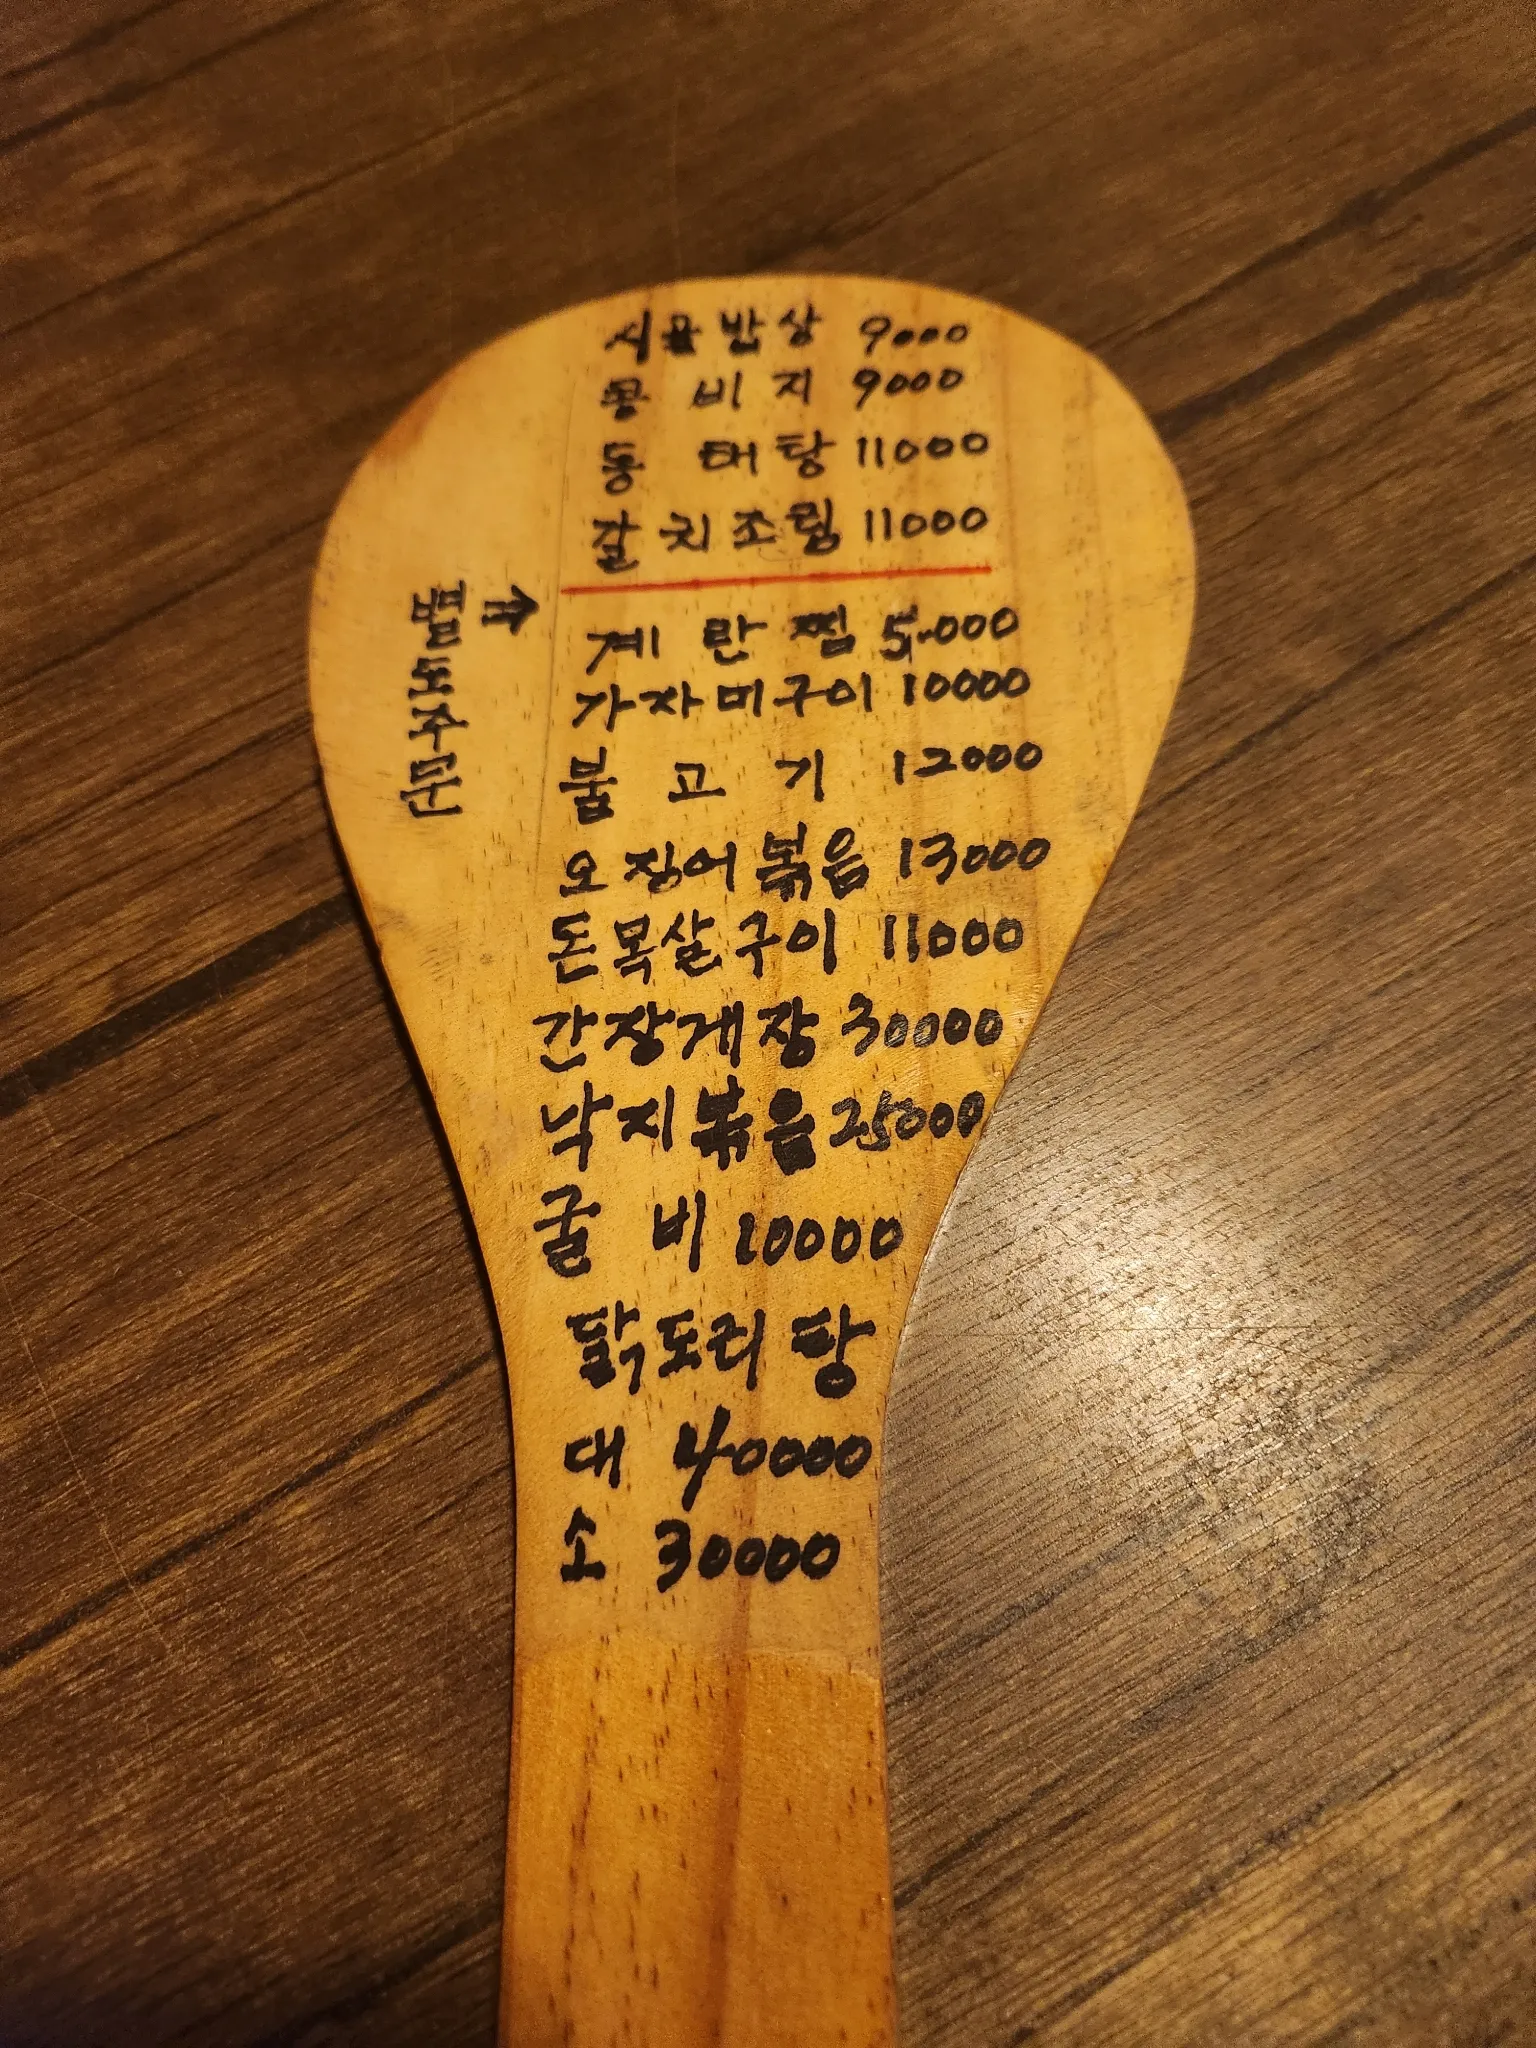 시골밥상 9000
콩비지 9000
동태탕 11000
갈치조림 11000
별도주문 →
계란찜 5,000
가자미구이 10000
불고기 12000
오징어볶음 13000
돈목살구이 11000
간장게장 30000
낙지볶음 25000
굴비 10000
닭도리탕
대 40000
소 30000